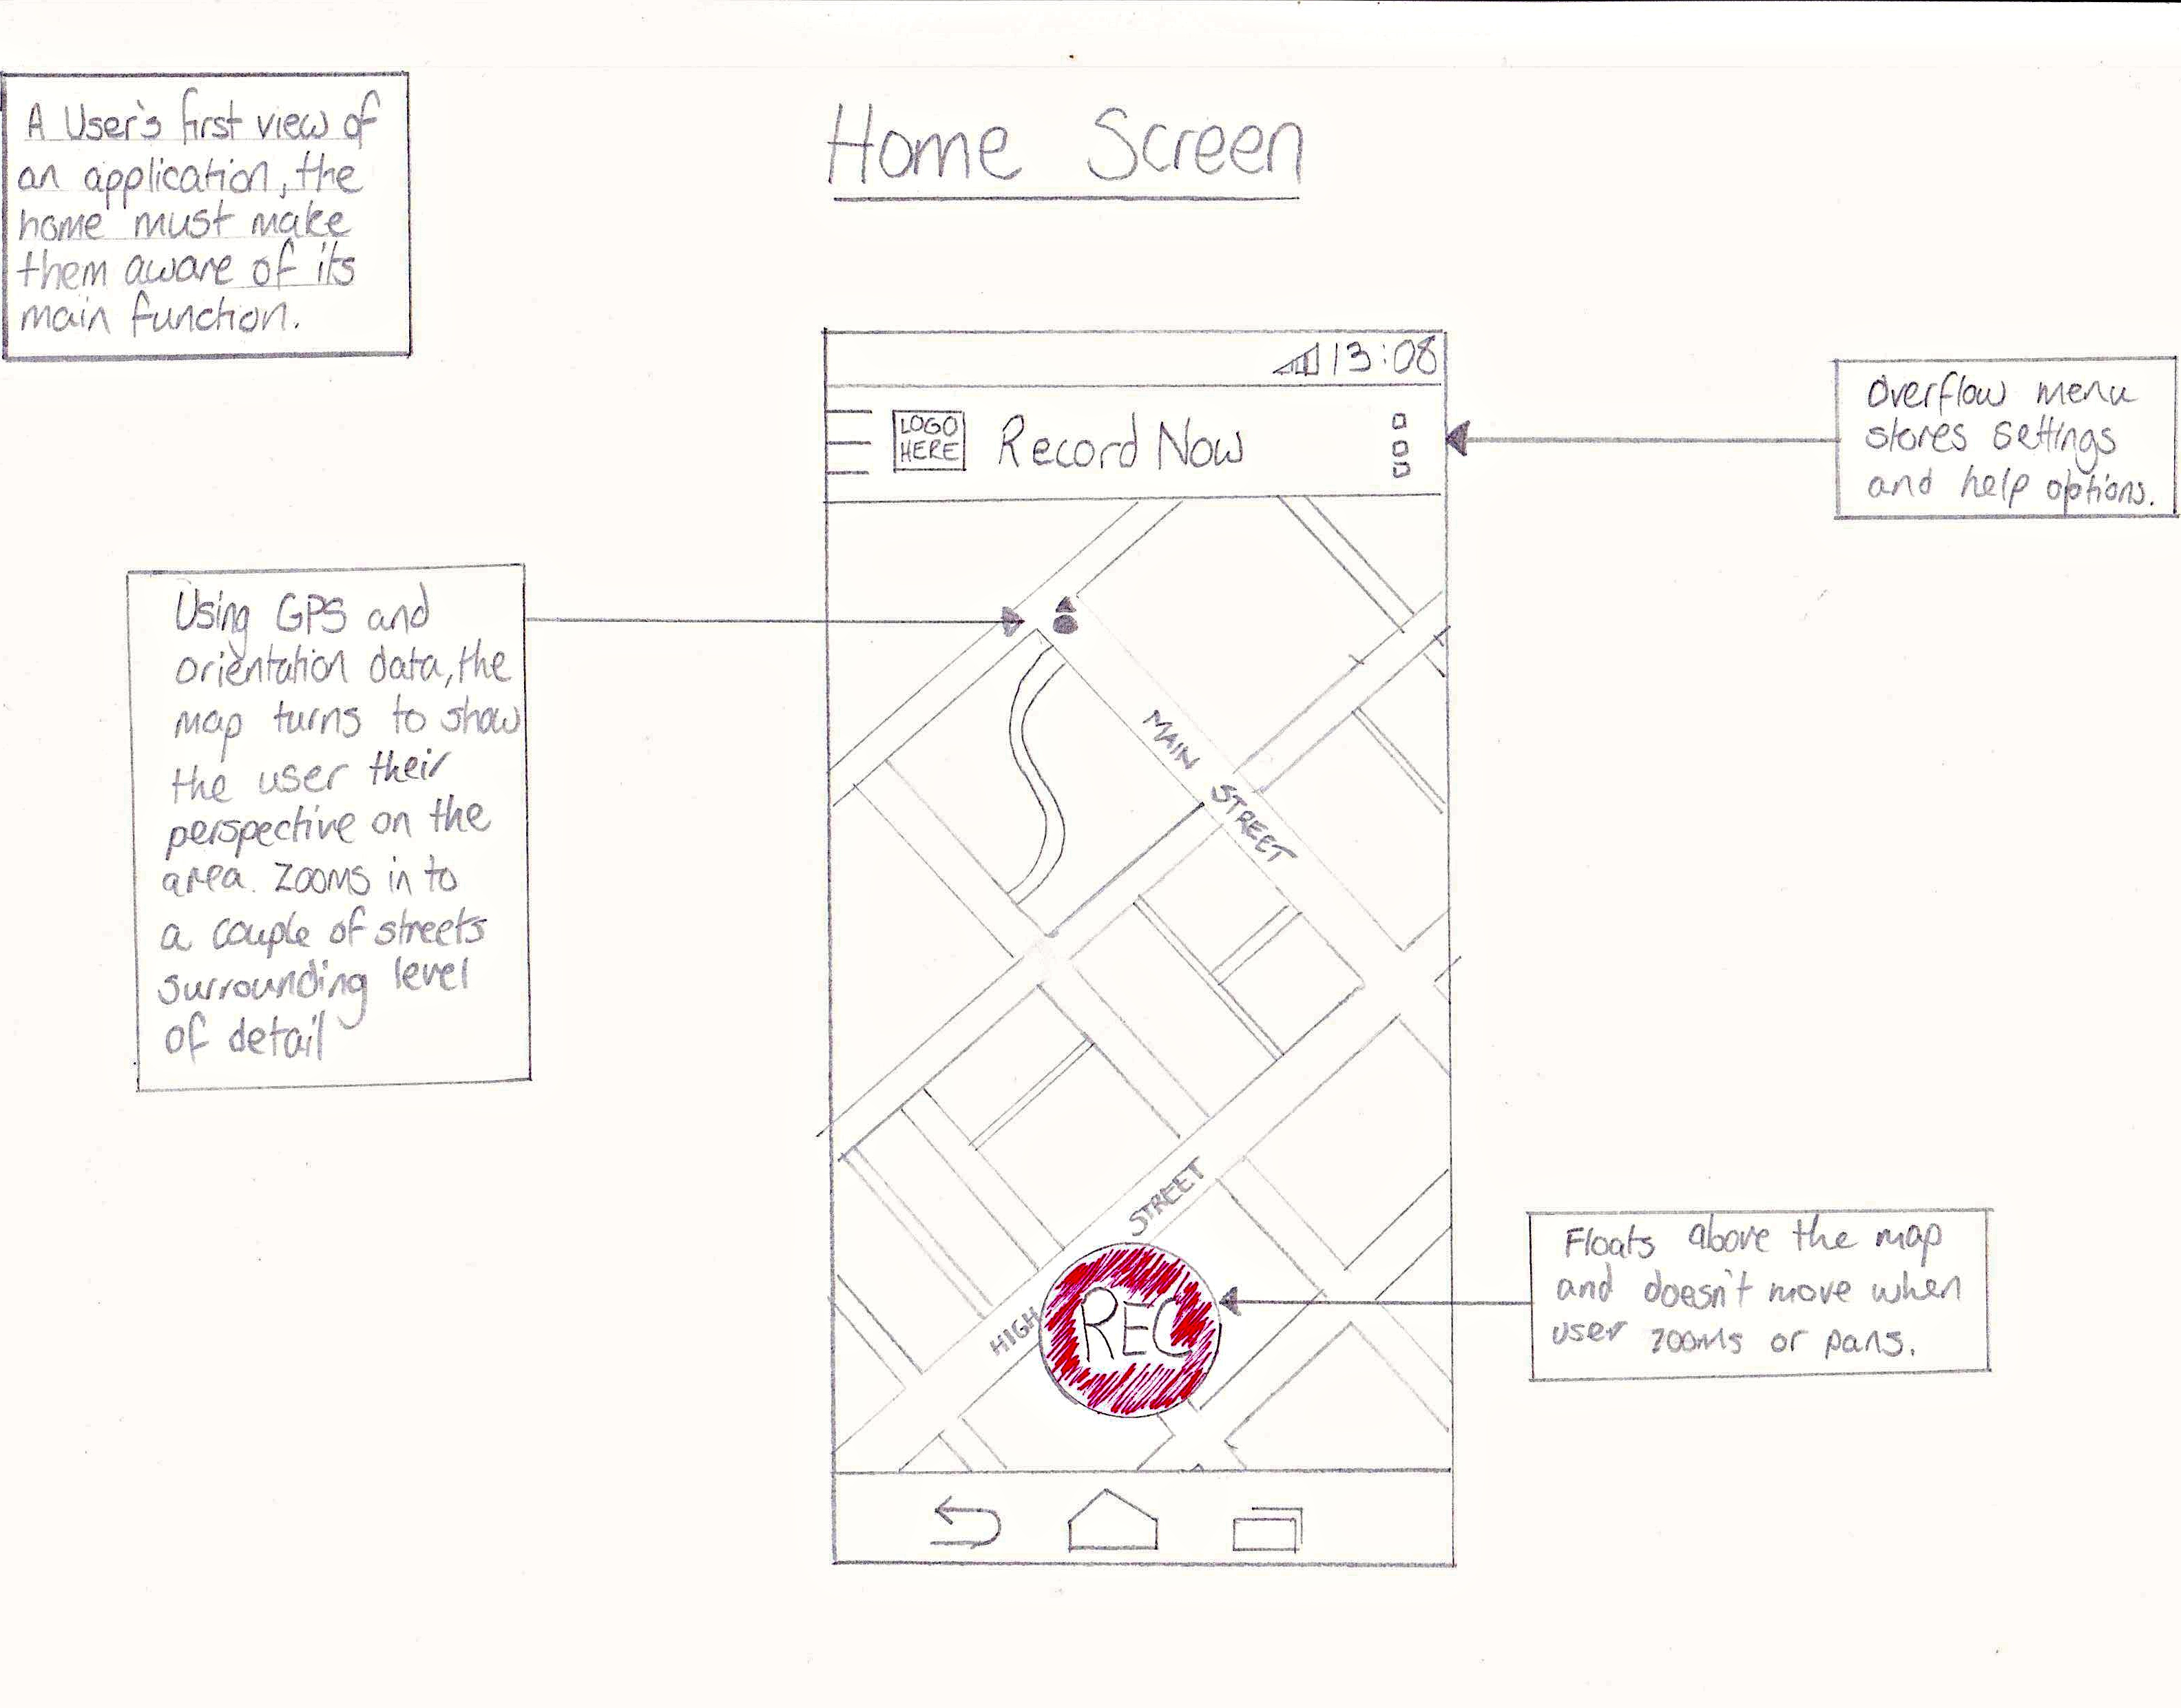 Home Screen
A User's first view of
an application, the
home must make
them aware of its
main function.
13:08
LOGO
HERE
Record Now
Overflow menu
stores settings
and help options.
Using GPS and
orientation data, the
map turns to show
the user their
perspective on the
area. Zooms in to
a couple of streets
surrounding level
of detail
MAIN STREET
HIGH STREET
REC
Floats above the map
and doesn't move when
user zooms or pans.